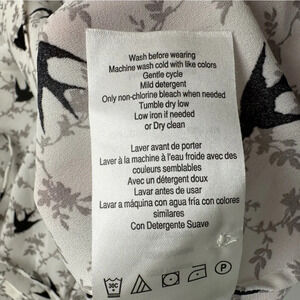 Wash before wearing
Machine wash cold with like colors
Gentle cycle
Mild detergent
Only non-chlorine bleach when needed
Tumble dry low
Low iron if needed
or Dry clean
Laver avant de porter
Laver à la machine à l'eau froide avec des
couleurs semblables
Avec un détergent doux
Lavar antes de usar
Lavar a máquina con agua fría con colores
similares
Con Detergente Suave
30C P